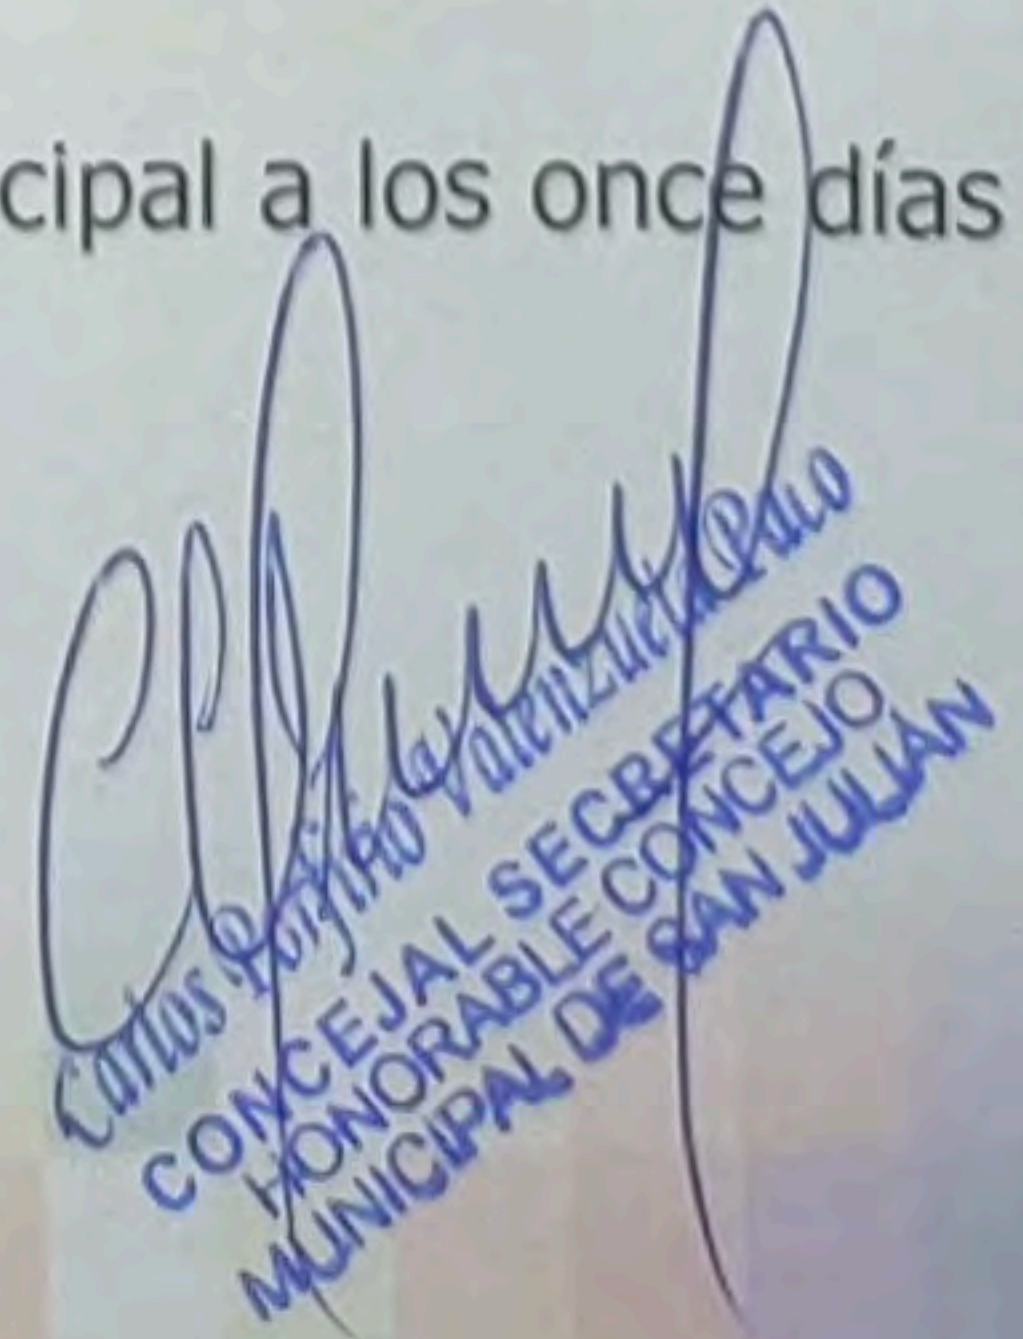 cipal a los once días
Carlos Porfirio Valenzuela
CONCEJAL SECRETARIO
HONORABLE CONCEJO
MUNICIPAL DE SAN JULIÁN